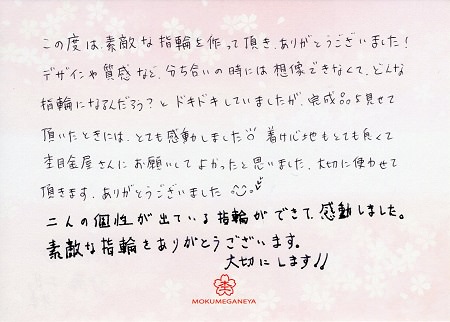 この度は、素敵な指輪を作って頂き、ありがとうございました！
デザインや質感など、分ち合いの時には想像できなくて、どんな
指輪になるんだろう？とドキドキしていましたが、完成品を見せて
頂いたときには、とても感動しました 着け心地もとても良くて
杢目金屋さんにお願いしてよかったと思いました。大切に使わせて
頂きます。ありがとうございました
二人の個性が出ている指輪ができて、感動しました。
素敵な指輪をありがとうございます。
大切にします!!
MOKUMEGANEYA